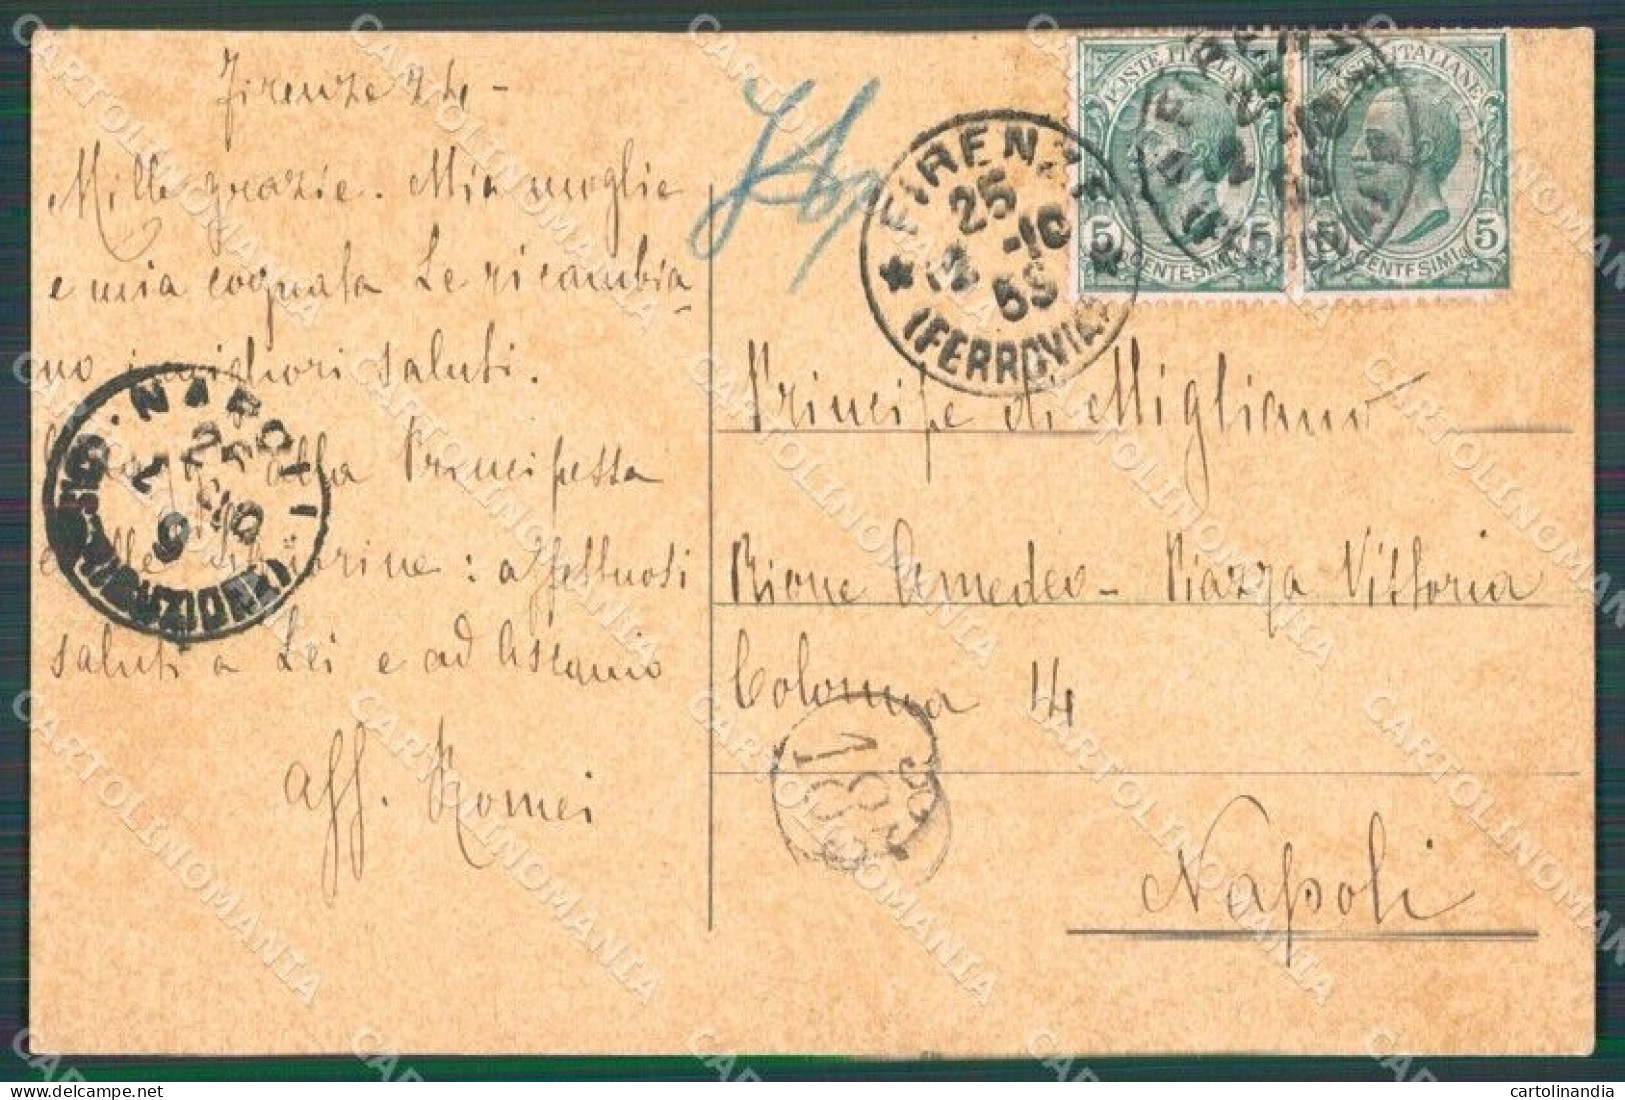 Firenze 24 -
Mille grazie. Mia moglie
e mia cognata Le ricambia-
no i migliori saluti.
alla Principessa
e alle Signorine: affettuosi
saluti a Lei e ad Ascanio
Aff. Romei
FIRENZE
25 -10
12
(FERROVIA)
POSTE ITALIANE
5 CENTESIMI 5
POSTE ITALIANE
5 CENTESIMI 5
Principe di Migliano
Rione Amedeo - Piazza Vittoria
Colonna 14
Napoli
NAPOLI
25
10
CARTOLINOMANIA
cartolinandia